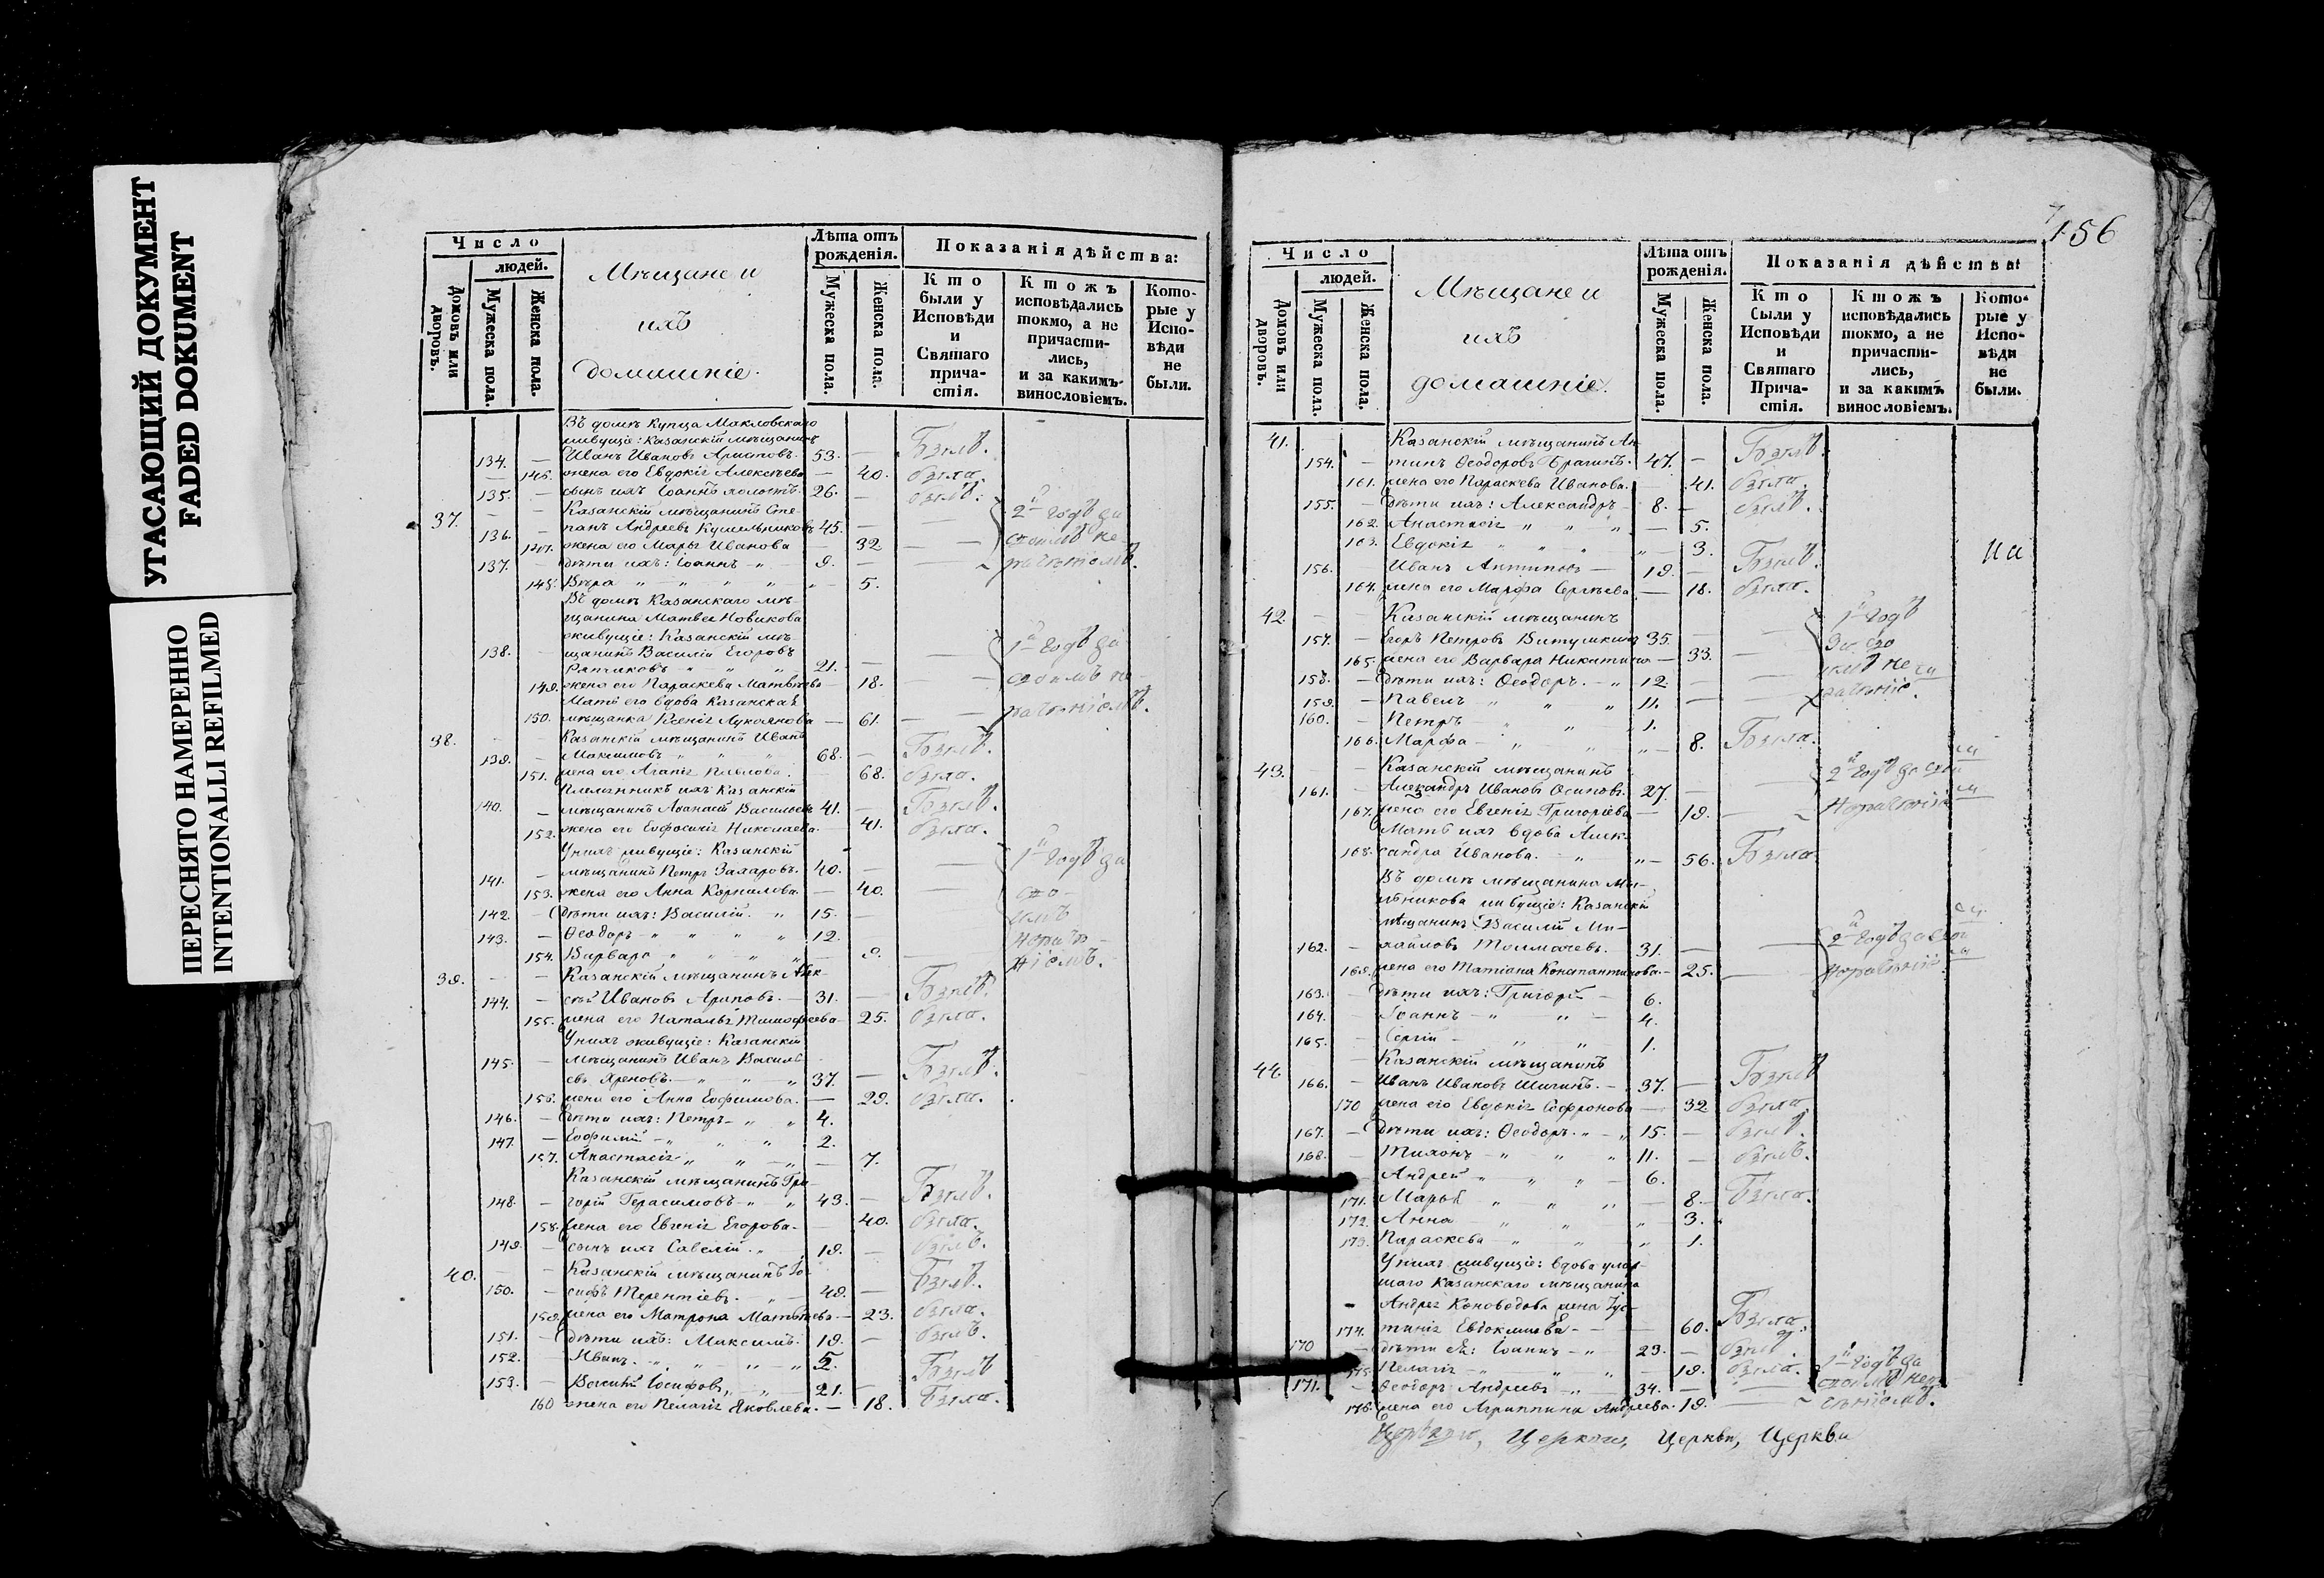 УГАСАЮЩИЙ ДОКУМЕНТ
FADED DOKUMENT
ПЕРЕСНЯТО НАМЕРЕННО
INTENTIONALLI REFILMED
Число
людей.
Домовъ или дворовъ.
Мужеска пола.
Женска пола.
Мѣщане и
ихъ
домашніе.
Лѣта отъ рожденія.
Мужеска пола.
Женска пола.
Показанія дѣйства:
Кто были у Исповѣди и Святаго прича-стія.
Ктожъ исповѣдались токмо, а не причасти-лись, и за какимъ винословіемъ.
Кото-рые у Испо-вѣди не были.
Въ домѣ Купца Макловскаго
живущіе: Казанскій мѣщанинъ
134. — Иванъ Ивановъ Ариповъ. 53. — Былъ.
— 146. жена его Евдокія Алексѣева — 40. была.
135. — сынъ ихъ Іоаннъ холостъ. 26. — былъ.
37. — — Казанскій мѣщанинъ Сте-
136. — панъ Андреевъ 45. — — 2й годъ за
147. жена его Марья Иванова — 32 — —
137. — дѣти ихъ: Іоаннъ 9. — —
148. Вѣра — 5.
Въ домѣ Казанскаго мѣ-
щанина Матвея Новикова
живущіе: Казанскій мѣ-
138. — щанинъ Василій Егоровъ
21. — — 1й годъ за
149. жена его Параскева Матвѣева — 18. —
Мать его вдова Казанская
150. мѣщанка Ксенія Лукоянова — 61. — —
38. — — Казанскій мѣщанинъ Иванъ
139. — Максимовъ 68. — Былъ.
151. жена его Агапія Павлова. — 68. была.
Племянникъ ихъ Казанскій
140. — мѣщанинъ Аѳанасій Васильевъ 41. — Былъ.
152. жена его Евфросинія Николаева. — 41. была.
У нихъ живущіе: Казанскій
141. — мѣщанинъ Петръ Захаровъ. 40. — — 1й годъ за
153. жена его Анна Корнилова — 40. —
142. — дѣти ихъ: Василій. 15. —
143. — Ѳеодоръ 12. —
154. Варвара — 9. —
39. — — Казанскій мѣщанинъ Алек-
144. — сѣй Ивановъ Ариповъ. — 31. — Былъ.
155. жена его Наталья Тимофеева — 25. была.
У нихъ живущіе: Казанскій
145. — мѣщанинъ Иванъ Василь
евъ Хреновъ. 37. — Былъ.
156. жена его Анна Евфимова. — 29. была.
146. — Дѣти ихъ: Петръ 4.
147. — Евфимій 2.
157. Анастасія — 7.
Казанскій мѣщанинъ Гри-
148. — горій Герасимовъ 43. — Былъ.
158. жена его Евгенія Егорова. — 40. была.
149. — сынъ ихъ Савелій. 19. — былъ.
40. — — Казанскій мѣщанинъ Іо-
150. — сифъ Терентіевъ. 49. — Былъ.
159. жена его Матрона Матвѣева — 23. была.
151. — дѣти ихъ: Максимъ. 19. — былъ.
152. — Иванъ. 5.
153. — Василій Іосифовъ 21. — Былъ
160 жена его Пелагія Яковлева. — 18. Была.
156
Число
людей.
Домовъ или дворовъ.
Мужеска пола.
Женска пола.
Мѣщане и
ихъ
домашніе.
Лѣта отъ рожденія.
Мужеска пола.
Женска пола.
Показанія дѣйства:
Кто были у Исповѣди и Святаго Прича-стія.
Ктожъ исповѣдались токмо, а не причасти-лись, и за какимъ винословіемъ.
Кото-рые у Испо-вѣди не были.
41. Казанскій мѣщанинъ Ан-
154. — типъ Ѳеодоровъ Брагинъ. 47. — Былъ.
161. жена его Параскева Иванова. — 41. была.
155. — Дѣти ихъ: Александръ 8. — былъ.
162. Анастасія — 5.
163. Евдокія — 3.
156. Иванъ Антиповъ — 19. — Былъ.
164. жена его Марфа Сергѣева — 18. была.
42. — Казанскій мѣщанинъ
157. — Егоръ Петровъ Витушкинъ 35. — — 1й годъ
165. жена его Варвара Никитина — 33. —
158. — Дѣти ихъ: Ѳеодоръ. 12. — —
159. — Павелъ 11. — —
160. — Петръ 1.
166. Марфа — 8. Была.
43. — — Казанскій мѣщанинъ
161. — Александръ Ивановъ Осиповъ. 27. — — 2й годъ за
167. жена его Евгенія Григоріева — 19. —
Мать ихъ вдова Алек-
168. сандра Иванова. — 56. Была
Въ домѣ мѣщанина
живущіе: Казанскій
мѣщанинъ Василій Ми-
162. — хайловъ Толмачевъ. 31. — — 2й годъ за
169. жена его Татіана Константинова. — 25. —
163. — Дѣти ихъ: Григорій 6.
164. — Іоаннъ 4.
165. — Сергій 1.
44. — Казанскій мѣщанинъ
166. — Иванъ Ивановъ Шигинъ. 37. — Былъ
170 жена его Евдокія Софронова — 32 была
167. — Дѣти ихъ: Ѳеодоръ. 15. — былъ.
168. — Тихонъ 11. — былъ.
Андрей 6.
171. Марья — 8. — Была.
172. Анна 3.
173. Параскева 1.
У нихъ живущіе: вдова умер-
шаго Казанскаго мѣщанина
Андрея Коноводова жена Іус-
174. тинія Евдокимова — 60. Была.
170 — дѣти ея: Іоаннъ 23. — былъ.
175. Пелагія — 19. была. 1й годъ за
171. — Ѳеодоръ Андреевъ 34. —
176. жена его Агриппина Андреева. 19. —
Церкви, Церкви